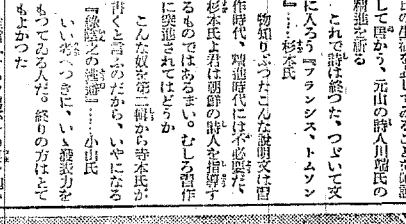 して居かう、元山の詩人川端氏の
精進を祈る
これで詩は終つた、つゞいて文
に入ろう『フランシス、トムソン
』……杉本氏
物知りぶつたこんな説明文は習
作時代、精進時代には不必要だ、
杉本氏よ君は朝鮮の詩人を指導す
るものではあるまい。むしろ習作
に突進されてはどうか
こんな奴を第二輯から寺本氏が
書くと言ふのだから、いやになる
『綠蔭之の』……小山氏
いゝ思ひつきに、いゝ發表力を
もつてゐる人だ。終りの方はとて
もよかつた